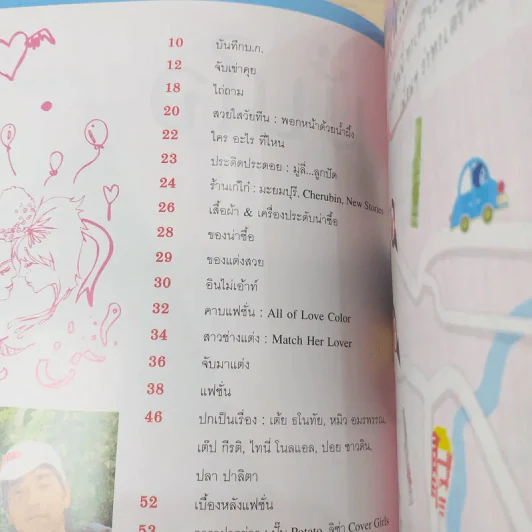 10 บันทึกบ.ก.
12 จับเข่าคุย
18 ไถ่ถาม
20 สวยใสวัยทีน : พอกหน้าด้วยน้ำผึ้ง
22 ใคร อะไร ที่ไหน
23 ประดิดประดอย : มู่ลี่...ลูกปัด
24 ร้านเก๋ไก๋ : มะยมบุรี, Cherubin, New Stories
26 เสื้อผ้า & เครื่องประดับน่าซื้อ
28 ของน่าซื้อ
29 ของแต่งสวย
30 อินไม่เอ้าท์
32 คาบแฟชั่น : All of Love Color
34 สาวช่างแต่ง : Match Her Lover
36 จับมาแต่ง
38 แฟชั่น
46 ปกเป็นเรื่อง : เต้ย ธโนทัย, หมิว อมรพรรณ,
เต๊ป กีรติ, ไทนี่ โนลแอล, ปอย ชาวดิน,
ปลา ปาลิตา
52 เบื้องหลังแฟชั่น
53 : ปั๊บ Potato, ลิซ่า Cover Girls